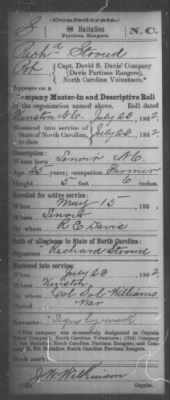 (Confederate.)
S 8 Battalion N. C.
Partisan Rangers.
Rich'd Stroud
Capt. David S. Davis' Company
(Davis Partisan Rangers),
North Carolina Volunteers.*
Appears on a
Company Muster-in and Descriptive Roll
of the organization named above. Roll dated
Kinston N.C. July 22, 1862.
Mustered into service of
State of North Carolina, July 22, 1862.
to date
Description:
Where born Lenoir N.C.
Age 25 years; occupation Farmer
Height 5 feet 6 inches.
Enlisted for active service:
When May 15, 186 .
Where Lenoir
By whom R E Davis
Oath of allegiance to State of North Carolina:
Signature Richard Stroud
Mustered into service:
When July 22, 1862.
Where Kinston
By whom Col Sol Williams
Period War
Remarks: Signs by mark
Book mark:
J. W. Wilkinson
Copyist.